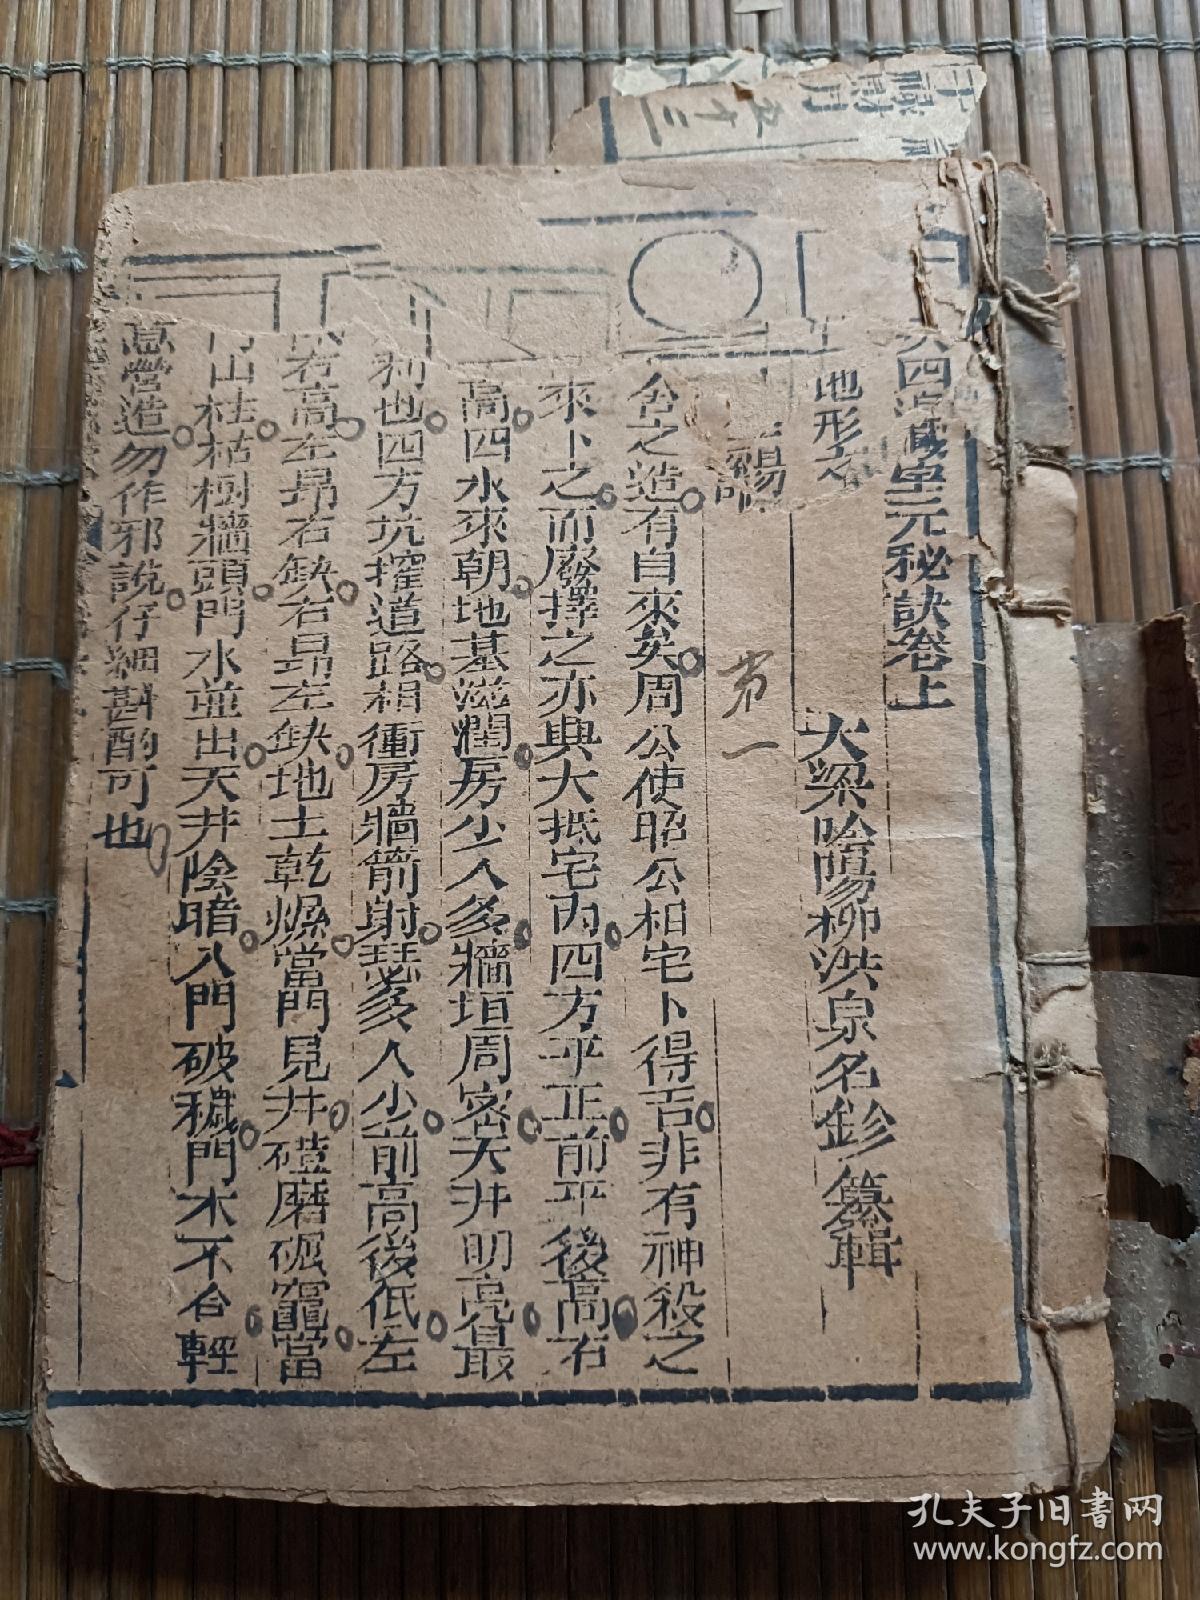 四
元秘訣卷上
大梁陰陽柳洪泉名鉁纂輯
地形
陽
第一
舍之造有自來矣周公使昭公相宅卜得吉非有神殺之
來卜之而廢擇之亦與大抵宅內四方平正前平後高右
高四水來朝地基滋潤房少人多牆垣周密天井明亮最
利也四方坑窪道路相衝房牆箭射房多人少前高後低左
右高左昂右缺右昂左缺地土乾燥當門見井磑磨碾竈當
山柱枯樹牆頭門水並出天井陰暗入門破穢門木不合輕
意營造勿作邪說仔細斟酌可也
五十三
孔夫子旧书网
www.kongfz.com